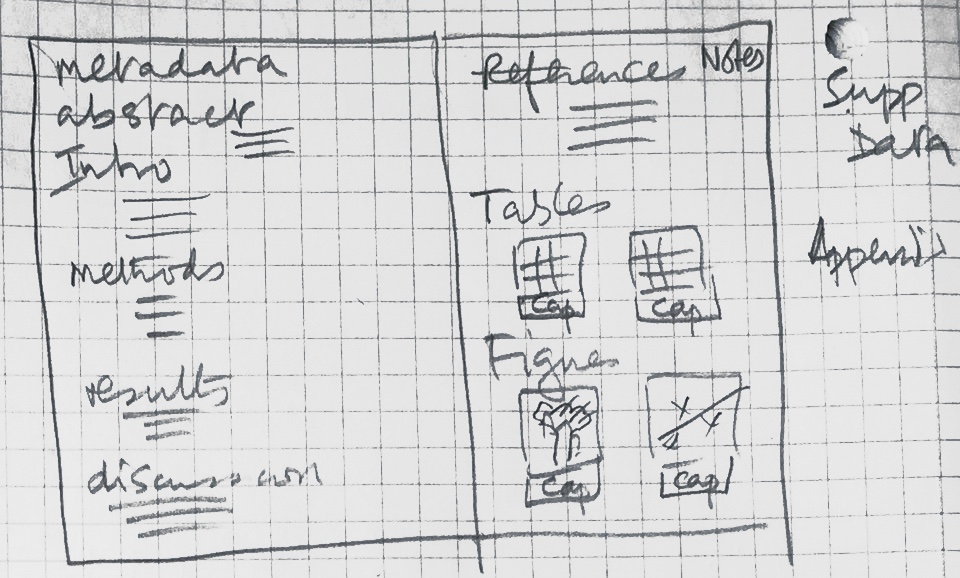 metadata
abstract
Intro
methods
results
discussion
References Notes
Tables
cap cap
Figures
cap cap
Supp
Data
Appendix